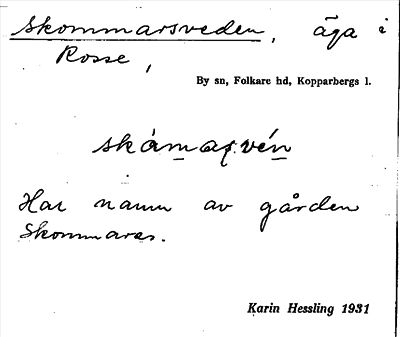 Skommarsveden, äga i
Rosse,
By sn, Folkare hd, Kopparbergs l.
Har namn av gården
Skommares.
Karin Hessling 1931